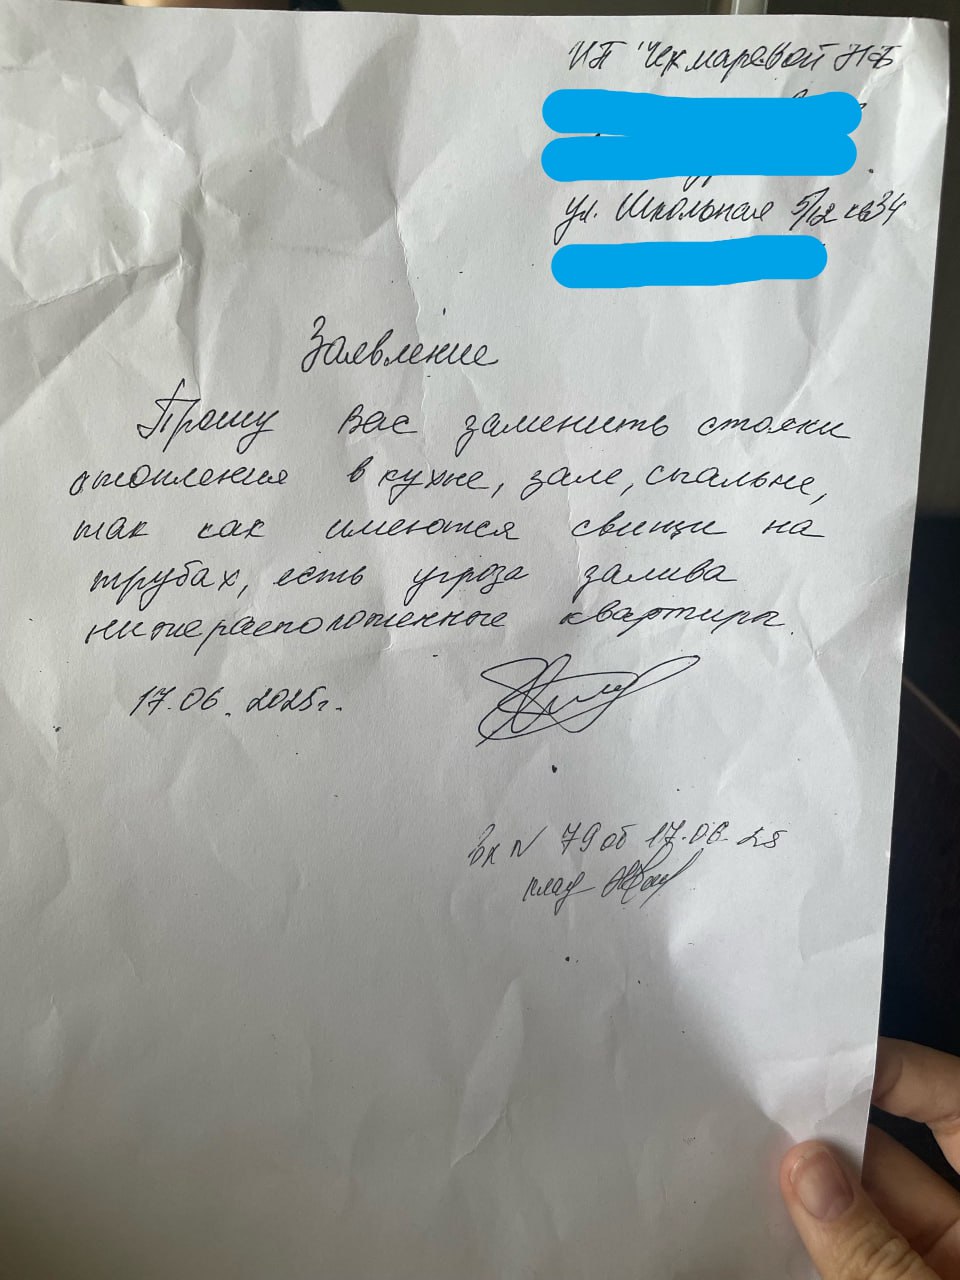 ИП Чекмаревой Н Б
ул. Школьная 5/12 кв34
Заявление
Прошу Вас заменить стояки
отопления в кухне, зале, спальне,
так как имеются свищи на
трубах, есть угроза залива
нижерасположенные квартиры.
17.06. 2025г.
Вх N 79 от 17.06.25